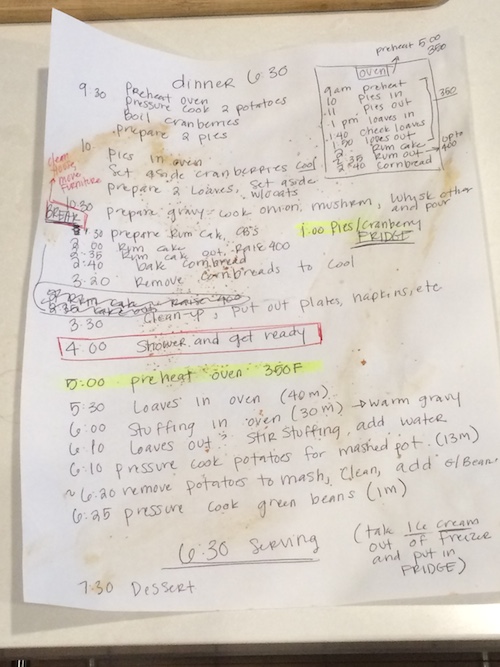 preheat 5:00
350
dinner 6:30
OVEN
9am preheat
10 pies in
11 pies out
1pm loaves in
1:40 check loaves
1:50 loaves out
2 Rum cake
2:35 Rum out → up to 400
2:40 cornbread
350
9:30 Preheat oven
pressure cook 2 potatoes
boil cranberries
prepare 2 pies
10 pies in oven
Set aside cranberries cool
prepare 2 Loaves, set aside
w/oats
clean house, move furniture
BREAK
10:30 prepare gravy - cook onion, mushrm, whisk other and pour
1:30 prepare Rum Cak, CB's
1:00 Pies/Cranberry
FRIDGE
2:00 Rum cake
2:35 Rum cak out, Raise 400
2:40 bake cornbread
3:20 Remove cornbreads to cool
3:30 Clean-up, put out plates, napkins, etc
4:00 Shower and get ready
5:00 preheat oven 350F
5:30 Loaves in oven (40m)
6:00 Stuffing in oven (30m) → warm gravy
6:10 Loaves out. Stir Stuffing, add water
6:10 pressure cook potatoes for mashed pot. (13m)
~ 6:20 remove potatoes to mash, clean, add G/Bean.
6:25 pressure cook green beans (1m)
6:30 Serving
(take Ice cream
out of freezer
and put in
FRIDGE)
7:30 Dessert